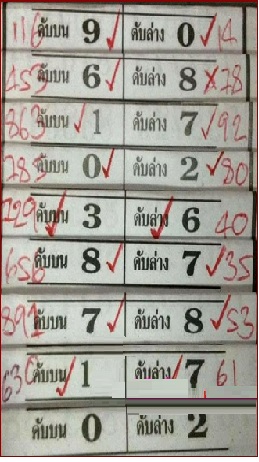 116 ดับบน 9 ดับล่าง 0 14
453 ดับบน 6 ดับล่าง 8 78
863 ดับบน 1 ดับล่าง 7 92
ดับบน 0 ดับล่าง 2 80
229 ดับบน 3 ดับล่าง 6 40
656 ดับบน 8 ดับล่าง 7 35
891 ดับบน 7 ดับล่าง 8 53
ดับบน 1 ดับล่าง 7 61
ดับบน 0 ดับล่าง 2